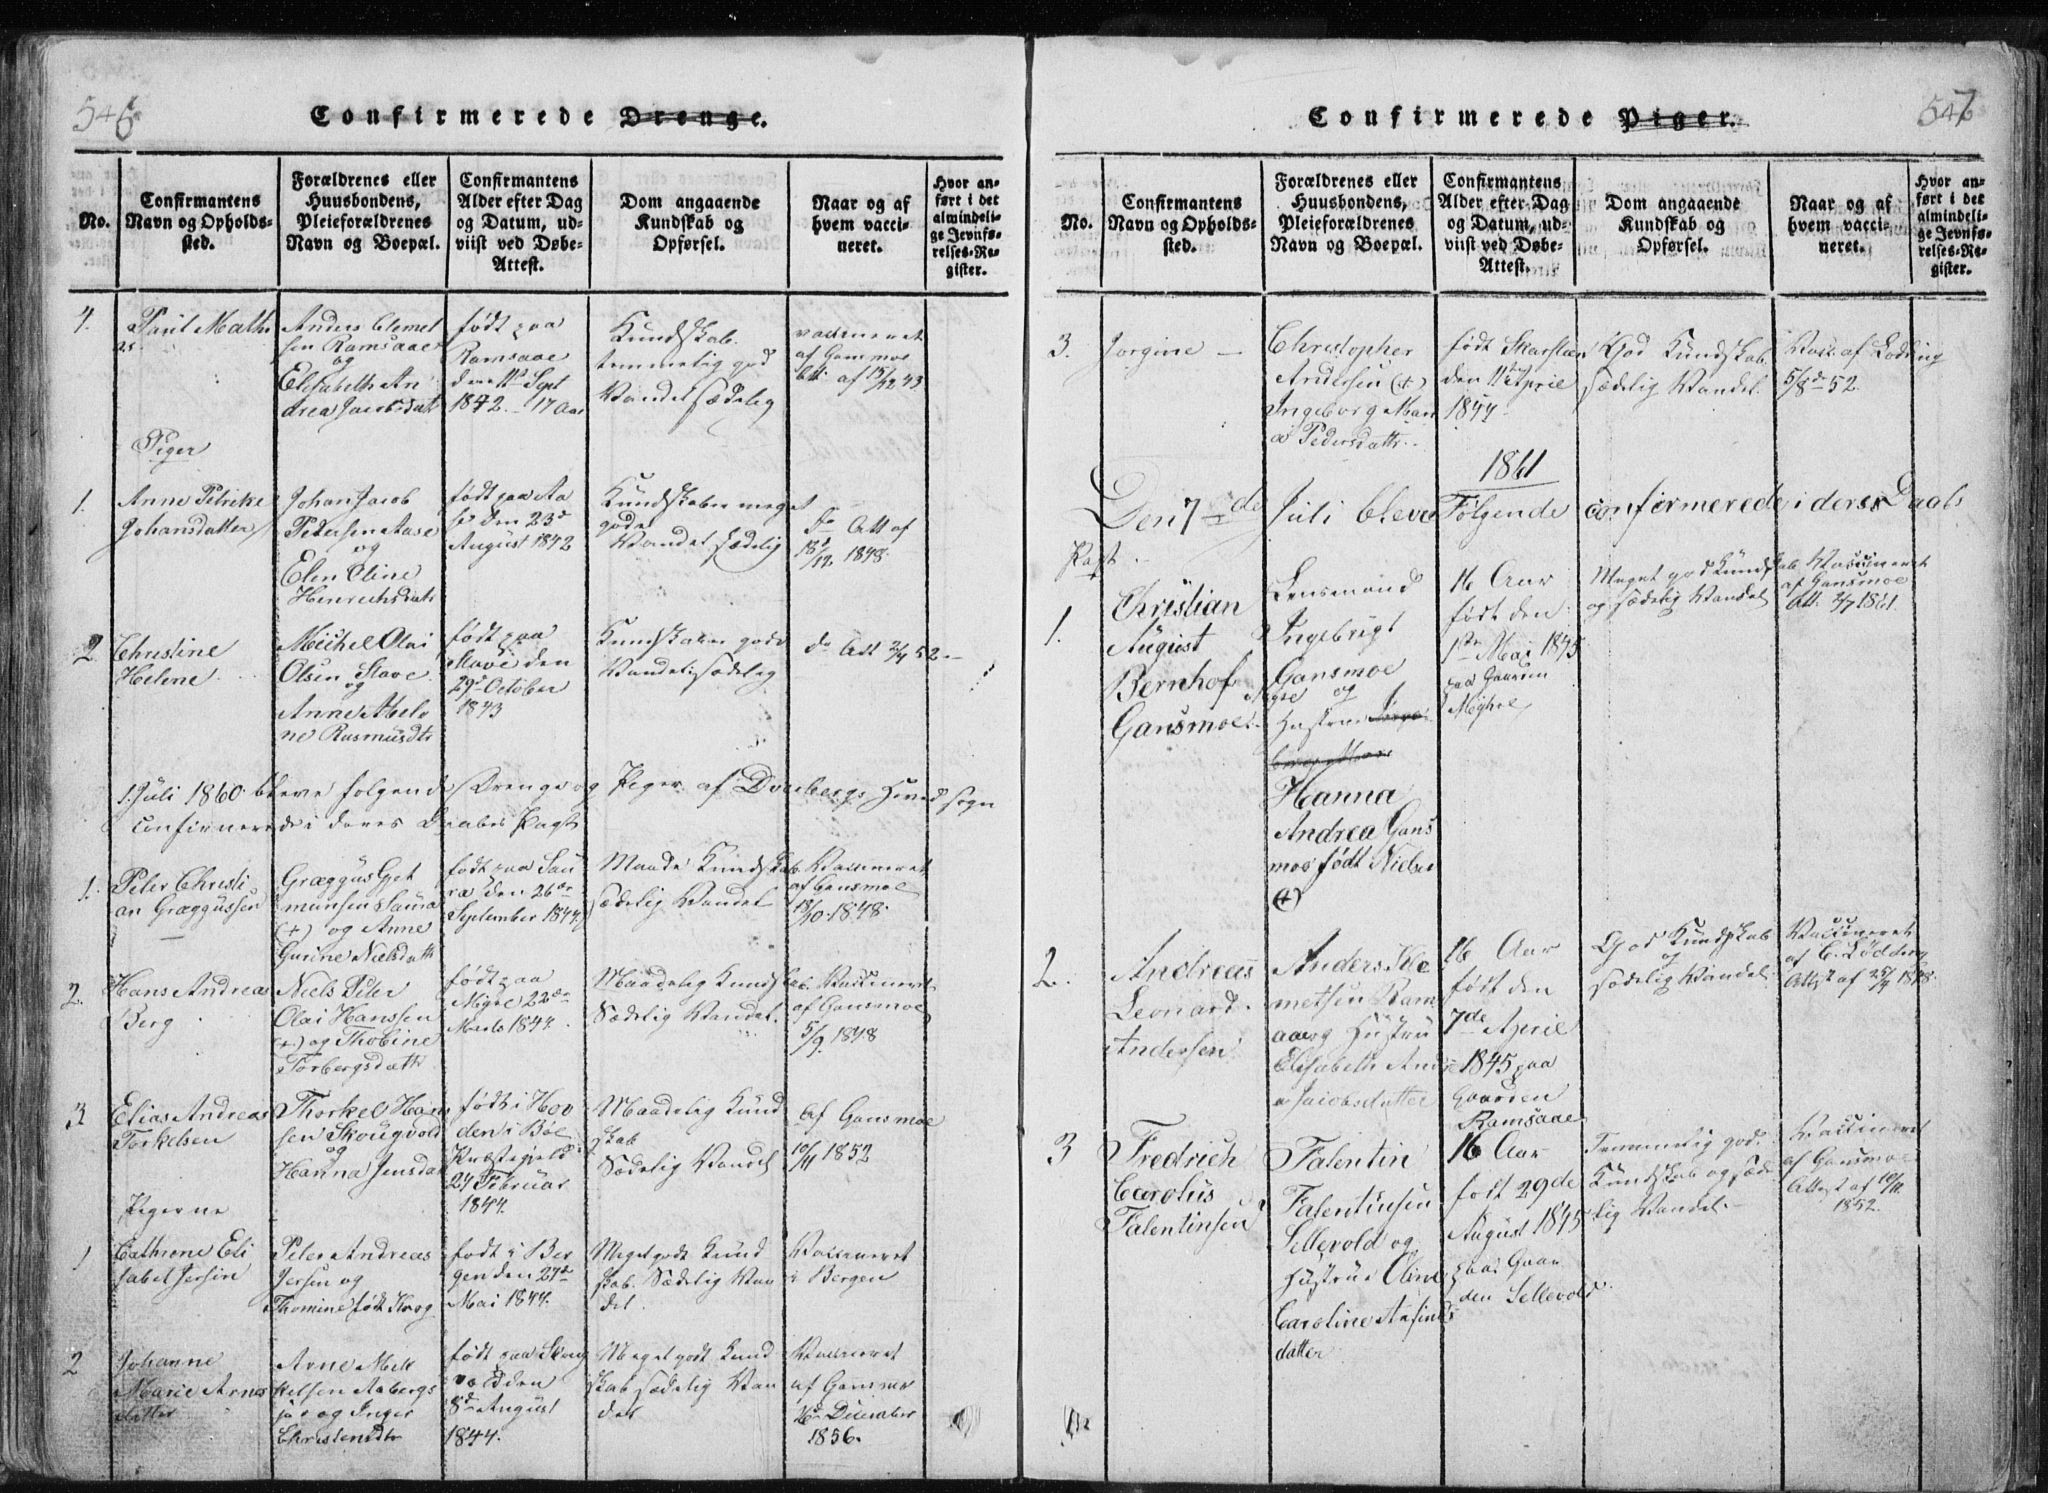 546
Confirmerede Drenge.
No.
Confirmantens
Navn og Opholds-
sted.
Forældrenes eller
Huusbondens,
Pleieforældrenes
Navn og Boepæl.
Confirmantens
Alder efter Dag
og Datum, ud-
viist ved Døbe-
Attest.
Dom angaaende
Kundskab og
Opførsel.
Naar og af
hvem vacci-
neret.
Hvor an-
ført i det
almindeli-
ge Jevnfø-
relses-Re-
gister.
4.
Anders Clemet
sen Ramsaae
og
Elisabeth An
drea Jacobsdat
født paa
Ramsaae
den 11te Sept
1842. – 17 Aar
Kundskab.
temmelig god
Vandel sædelig
vaccineret
af Gansmoe
Att. af 15/12 43
Piger
1.
Anne Petrike
Johansdatter
Johan Jacob
Petersen Aase
og
Elen Oline
Henrichsdatr
født paa Aa
se den 23d
August 1842
Kundskaber meget
gode
Vandel sædelig
do Att af
18/12 1848.
2
Christine
Helene
Michel Olai
Olsen Stave
og
Anne Malo
ne Rasmusdtr
født paa
Stave den
29d October
1843
Kundskaber gode
Vandel sædelig
do Att 2/4 52.
1. Juli 1860 bleve følgende Drenge og Piger af Dverbergs Hovedsogn
confirmerede i deres Daabes Pagt
1.
Peter Christi
an Græggussen
Græggus Gjet
mundsen Saura
(+) og Anne
Gurine Nielsdatr
født paa Sau
ra den 26de
September 1844
Maade Kundskab
Sædelig Vandel
Vaccineret
af Gansmoe
18/10 1848.
2.
Hans Andreas
Berg
Niels Peter
Olai Hanssen
(+) og Thobine
Torbergsdatr
født paa
Myre 22de
Marts 1844.
Maadelig Kundskab
Sædelig Vandel.
Vaccineret
af Gansmoe
5/9. 1848
3
Elias Andreas
Torkelsen
Thorkel Han
sen Skougvold
og
Hanna Jensdat
født i Hov
den i Bøe
Præstegjeld
24 Februar
1844.
Maadelig Kund
skab
Sædelig Vandel
Af Gansmoe
10/11 1852
Pigerne
1
Cathrine Eli
sabet Jersin
Peter Andreas
Jersin og
Thomine født Krog
født i Ber
gen den 27de
Mai 1844.
Meget godt Kund
skab. Sædelig Van
del.
Vaccineret
i Bergen
2
Johanne
Marie Arnes
datter
Arne Mik
kelsen Aabergs
jor og Inger
Christensdtr
født paa Skoug
vold den
8de August
1844.
Meget godt Kund
skab sædelig Van
del
Vaccineret
af Gansmoe
16de December
1856.
547
Confirmerede Piger.
No.
Confirmantens
Navn og Opholds-
sted.
Forældrenes eller
Huusbondens,
Pleieforældrenes
Navn og Boepæl.
Confirmantens
Alder efter Dag
og Datum, ud-
viist ved Døbe-
Attest.
Dom angaaende
Kundskab og
Opførsel.
Naar og af
hvem vacci-
neret.
Hvor an-
ført i det
almindeli-
ge Jevnfø-
relses-Re-
gister.
3.
Jorgine –
Christopher
Andersen (+)
Ingeborg Mari
a Pedersdattr
født Skarsten
den 11te April
1844.
God Kundskab
sædelig Vandel.
Vacc. af Lodding
5/8d 52.
1861
Den 7de Juli bleve Følgende confirmerede i deres Daabs
Pagt.
1.
Christian
August
Bernhof
Gansmoe.
Lensmand
Ingebrigt
Gansmoe
Myre og
Hustru
Hanna
Andrea Gans
moe født Nielsen
(+)
16 Aar
født den
1ste Mai 1845
paa Gaarden
Myhre
Meget god Kundskab
og sædelig Vandel
Vaccineret
af Gansmoe
Att. 2/7 1861.
2.
Andreas
Leonard
Andersen
Anders Kle
metsen Ram
aa og Hustru
Elisabeth Andre
a Jacobsdatter
16 Aar
født den
7de April
1845 paa
Gaarden
Ramsaae
God Kundskab
og
sædelig Vandel
Vaccineret
af C. Lodding
Attst af 25/9 1848.
3
Fredrich
Carolus
Falentinsen
Falentin
Falentinsen
Sellevold og
Hustrue Oline
Caroline Arfinds
datter
16 Aar
født 29de
August 1845
paa Gaar
den Sellevold
Temmelig god
Kundskab og sæde
lig Vandel.
Vaccineret
af Gansmoe
Attest af 10/11.
1852.